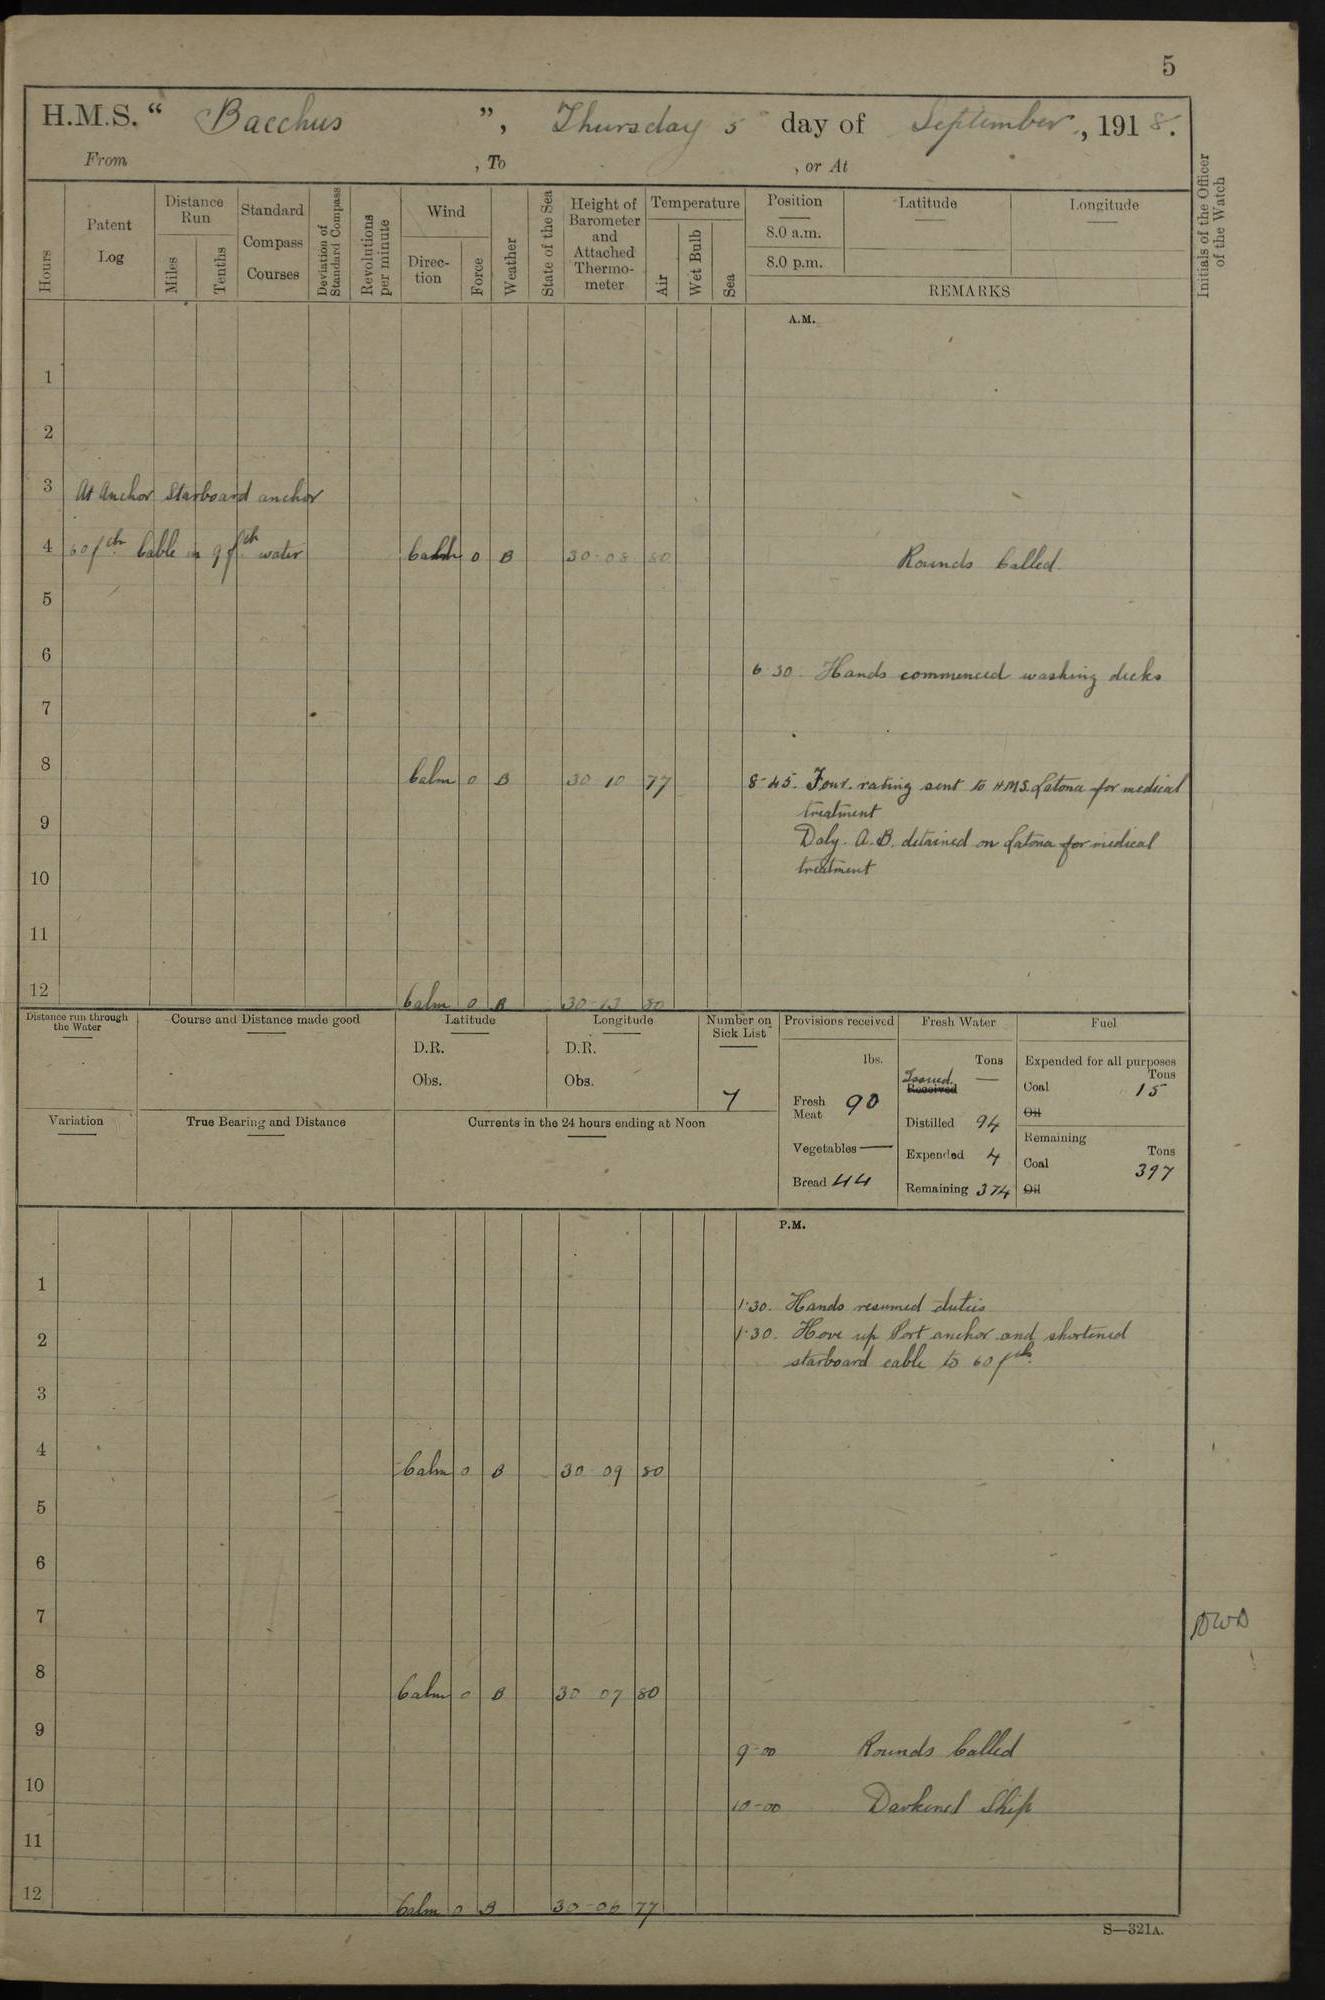 5
H.M.S. “ Bacchus ”, Thursday 5 day of September, 1918.
From , To , or At
Hours
Patent Log
Distance Run
Miles
Tenths
Standard Compass Courses
Deviation of Standard Compass
Revolutions per minute
Wind
Direction
Force
Weather
State of the Sea
Height of Barometer and Attached Thermometer
Temperature
Air
Wet Bulb
Sea
Position
8.0 a.m.
8.0 p.m.
Latitude
Longitude
REMARKS
Initials of the Officer of the Watch
A.M.
1
2
3 At Anchor Starboard anchor
4 60 fth Cable in 9 fth water Calm 0 B 30-08 80 Rounds Called
5
6
6-30. Hands commenced washing decks
7
8 Calm 0 B 30 10 77 8-45. Four. rating sent to H.M.S. Latona for medical
treatment
9
Daly. A.B. detained on Latona for medical
treatment
10
11
12 Calm 0 B 30-13 80
Distance run through the Water
Course and Distance made good
Latitude
D.R.
Obs.
Longitude
D.R.
Obs.
Number on Sick List
7
Provisions received
lbs.
Fresh Meat 90
Vegetables —
Bread 44
Fresh Water
Tons
Issued. —
Received
Distilled 94
Expended 4
Remaining 374
Fuel
Expended for all purposes
Tons
Coal 15
Oil
Remaining
Tons
Coal 397
Oil
Variation
True Bearing and Distance
Currents in the 24 hours ending at Noon
P.M.
1
1·30. Hands resumed duties
2 1·30. Hove up Port anchor and shortened
starboard cable to 60 fth.
3
4 Calm 0 B 30 09 80
5
6
7 DWD
8 Calm 0 B 30 07 80
9 9-00 Rounds Called
10 10-00 Darkened Ship
11
12 Calm 0 B 30-06 77
S—321A.